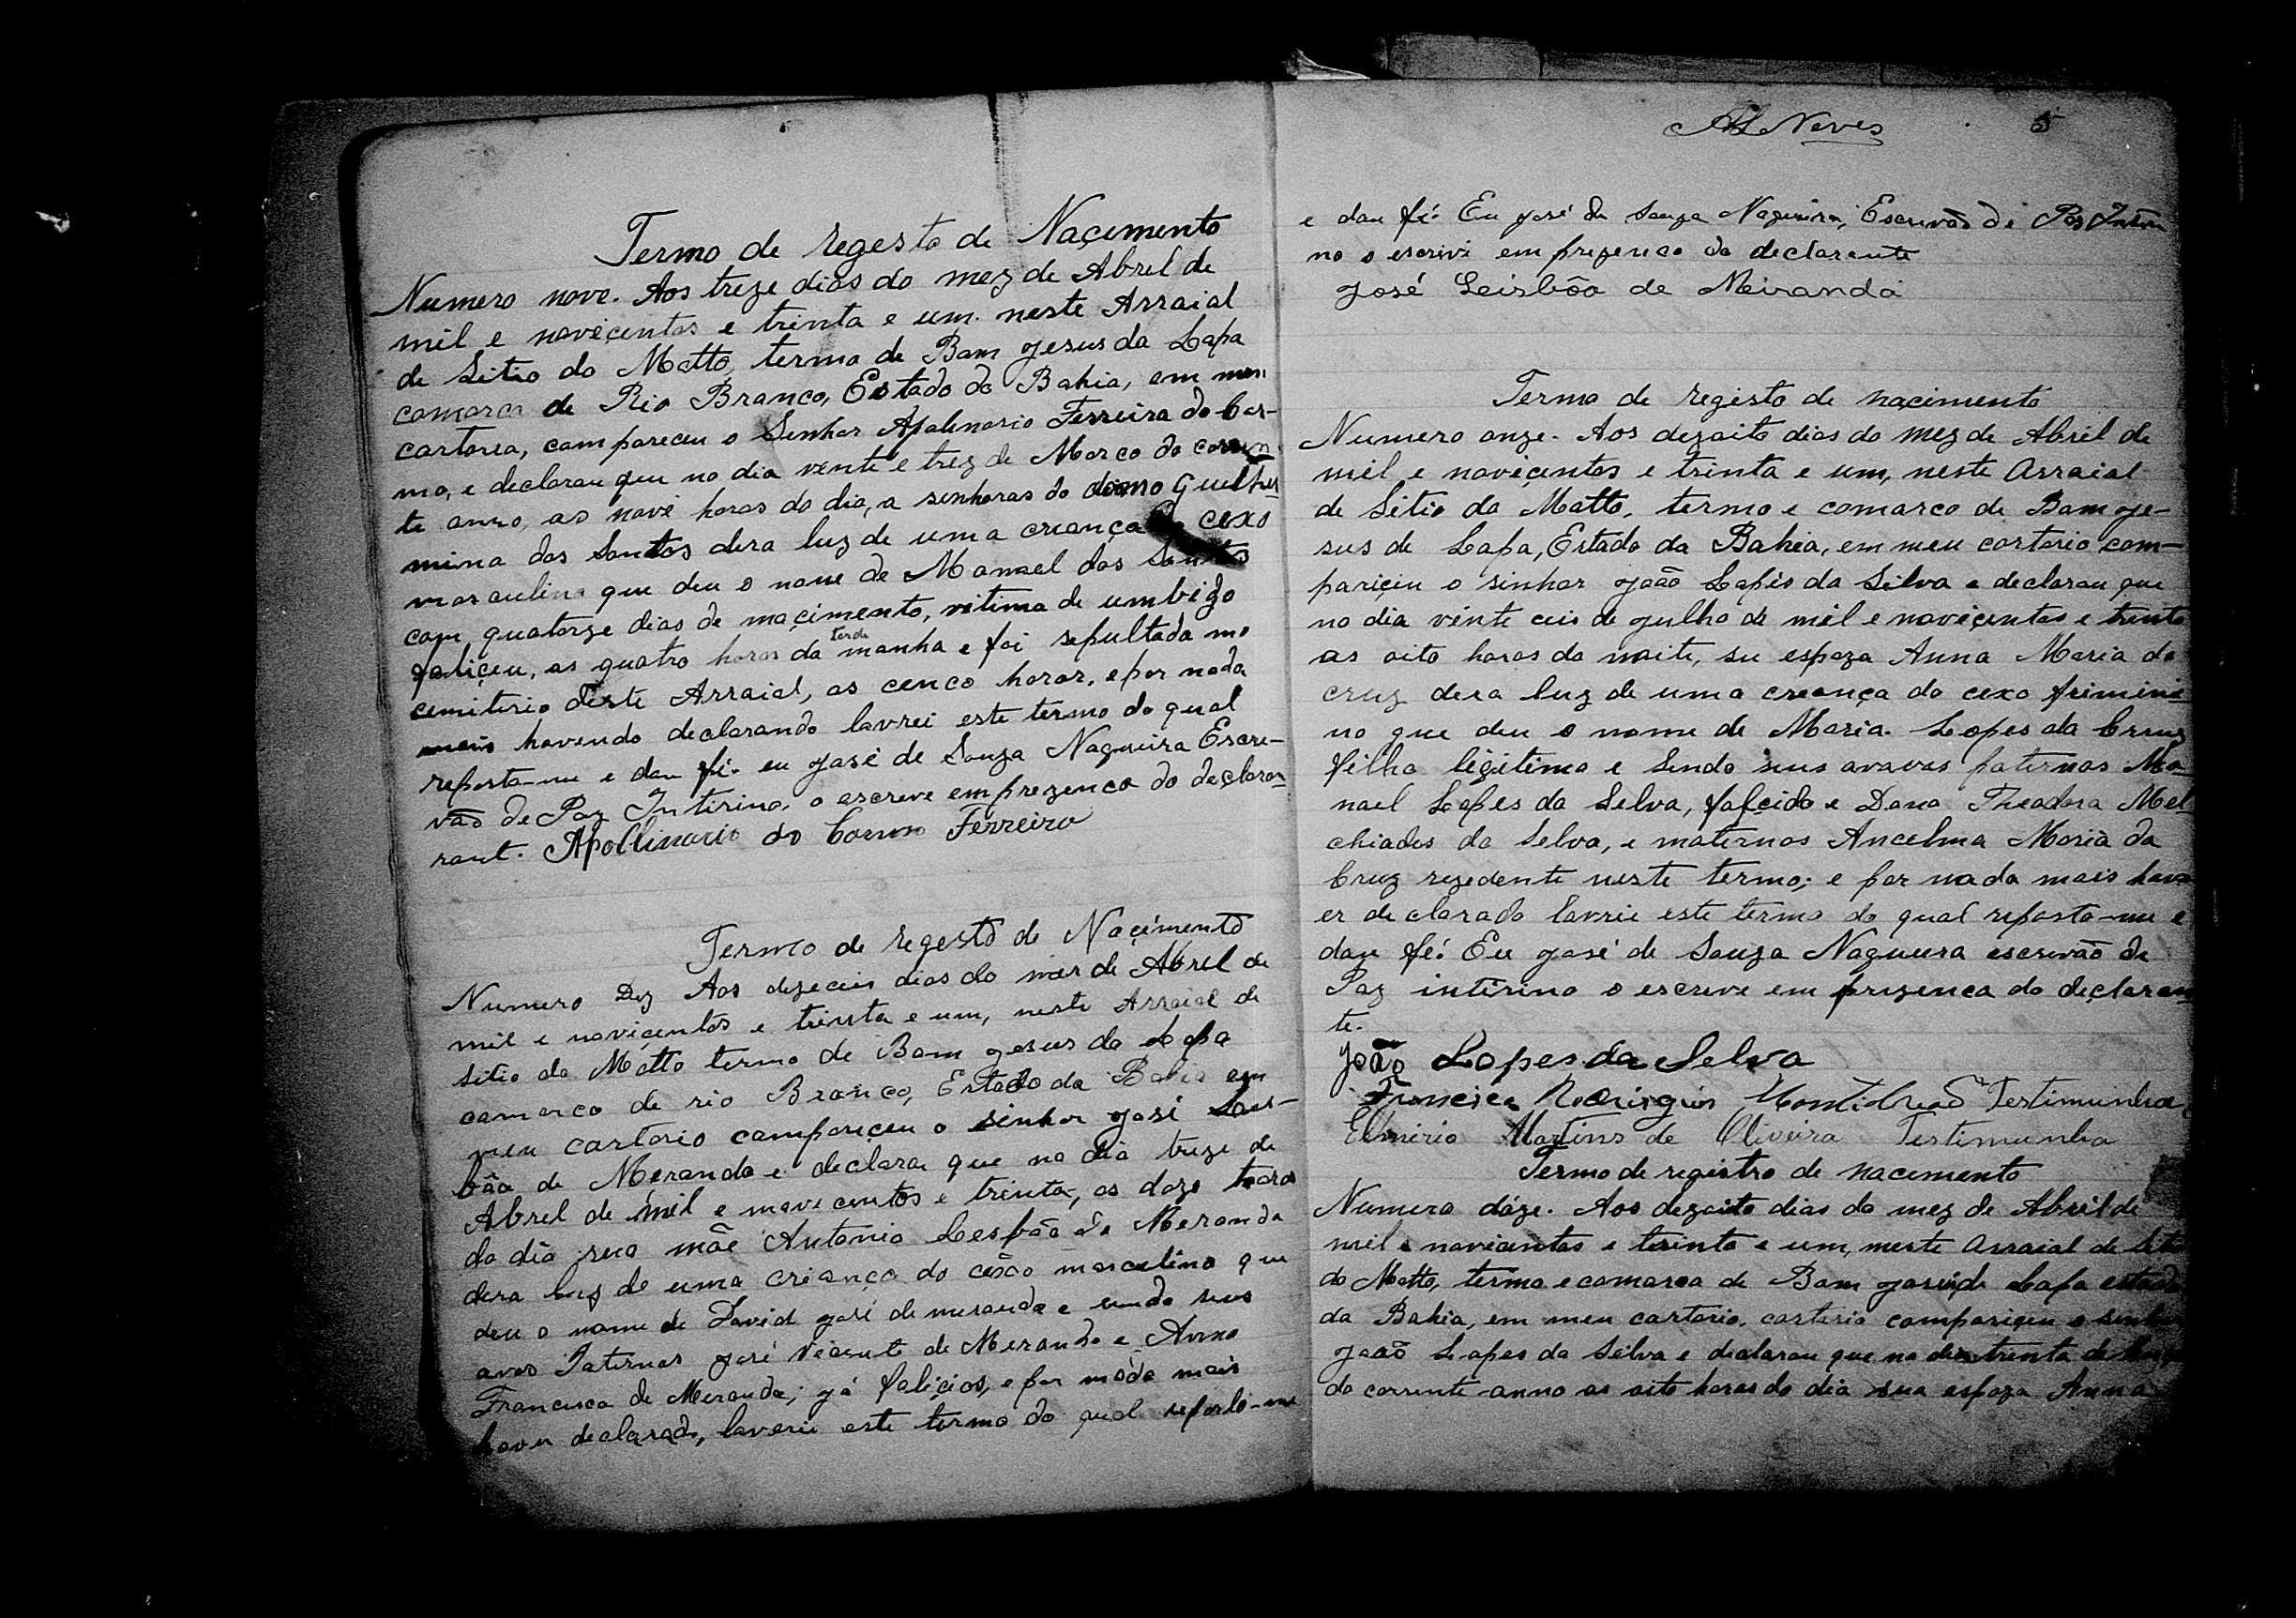 Termo de regesto de Naçimento
Numero nove. Aos treze dias do mez de Abrel de
mil e noveçentos e trinta e um. neste Arraial
de Sitio do Matto, termo de Bam Jesus da Lapa
comarca de Rio Branco, Estado da Bahia, em meu
cartorea, compareceu o Senhor Apalenario Ferreira do Car-
mo, e declarou que no dia vente e trez de Marco do corren
te anno, as nove horas do dia, a senhoras do dono Guelher
mina dos Santos dera luz de uma criança do cexo
masculino que deu o nome de Manoel dos Santos
com quatorze dias de naçimento, vitima de umbigo
faliçeu, as quatro horas da tarde manha e foi sepultada no
cemiterio deste Arraial, as cenco horas, e por nada
mais havendo declarando lavrei este termo do qual
reposto-me e dou fé. eu José de Souza Nogueira Escre-
vão de Paz Intirino, o escreve em prezenca do declaran
rant. Apollinario do Carmo Ferreira
Termo de regesto de Naçimento
Numero Dez Aos dezeceis dias do mes de Abrel de
mil e naviçentos e trinta e um, neste Arraial de
sitio do Matto termo de Bom Jesus da Lapa
comarca de rio Branco, Estado da Bahia em
meu cartorio campareçeu o senhor José Leus-
bôa de Meranda e declara que no dia treze de
Abrel de mil e nove centos e trinta, as doze horas
do dia sua mãe Antonia Lesbôa de Meranda
dera luz de uma criança do cêxo masculino que
deu o nome de David José de meranda e sendo seus
avos Paternos José Vicente de Meranda e Anna
Francisca de Meranda; já faliçios, e por nada mais
haver declarado, laverie este termo do qual reporto-me
AL Neves 5
e dou fé. Eu José de Souza Nogueira, Escrevão de Pas Interi
no o escrivi em prezenca do declarante
José Leisbôa de Meiranda
Termo de registo de naçimento
Numero onze. Aos dezoito dias do mez de Abril de
mil e naviçentos e trinta e um, neste Arraial
de Sitio do Matto, termo e comarca de Bam Je-
sus de Lapa, Estado da Bahia, em meu cartorio com-
pariçeu o sinhor João Lapes da Silva e declarou que
no dia vinte ceis de Julho de mil e noviçentos e trinta
as oito horas da noite, su espoza Anna Maria da
cruz dera luz de uma creança do cexo femini
no que deu o nome de Maria Lopes da Cruz
filha ligitima e Sendo seus avavos paternos Ma
nael Lopes da Selva, falçido e Dona Theadora Mel
chiades da Selva, e maternos Ancelma Maria da
Cruz rezedente neste termo; e por nada mais hava
er declarado lavrie este termo do qual reposto-me e
dou fé. Eu José de Souza Nogueira escrevão de
Paz intirino o escreve em prezenca do declaran
te.
João Lopes da Selva
Francisca Rodrigues Testimunha
Elmirio Martins de Oliveira Testimunha
Termo de registro de nacemento
Numero dóze. Aos dezoito dias do mez de Abril de
mil e naviçentos e trinta e um, neste Arraial de Sitio
do Matto, termo e comarca de Bam Jesus de Lapa estado
da Bahia, em meu cartorio, cartorio compariçeu o senhor
João Lopes da Silva e declarou que no dia trinta de
do corrente anno as oito horas do dia sua espoza Anna